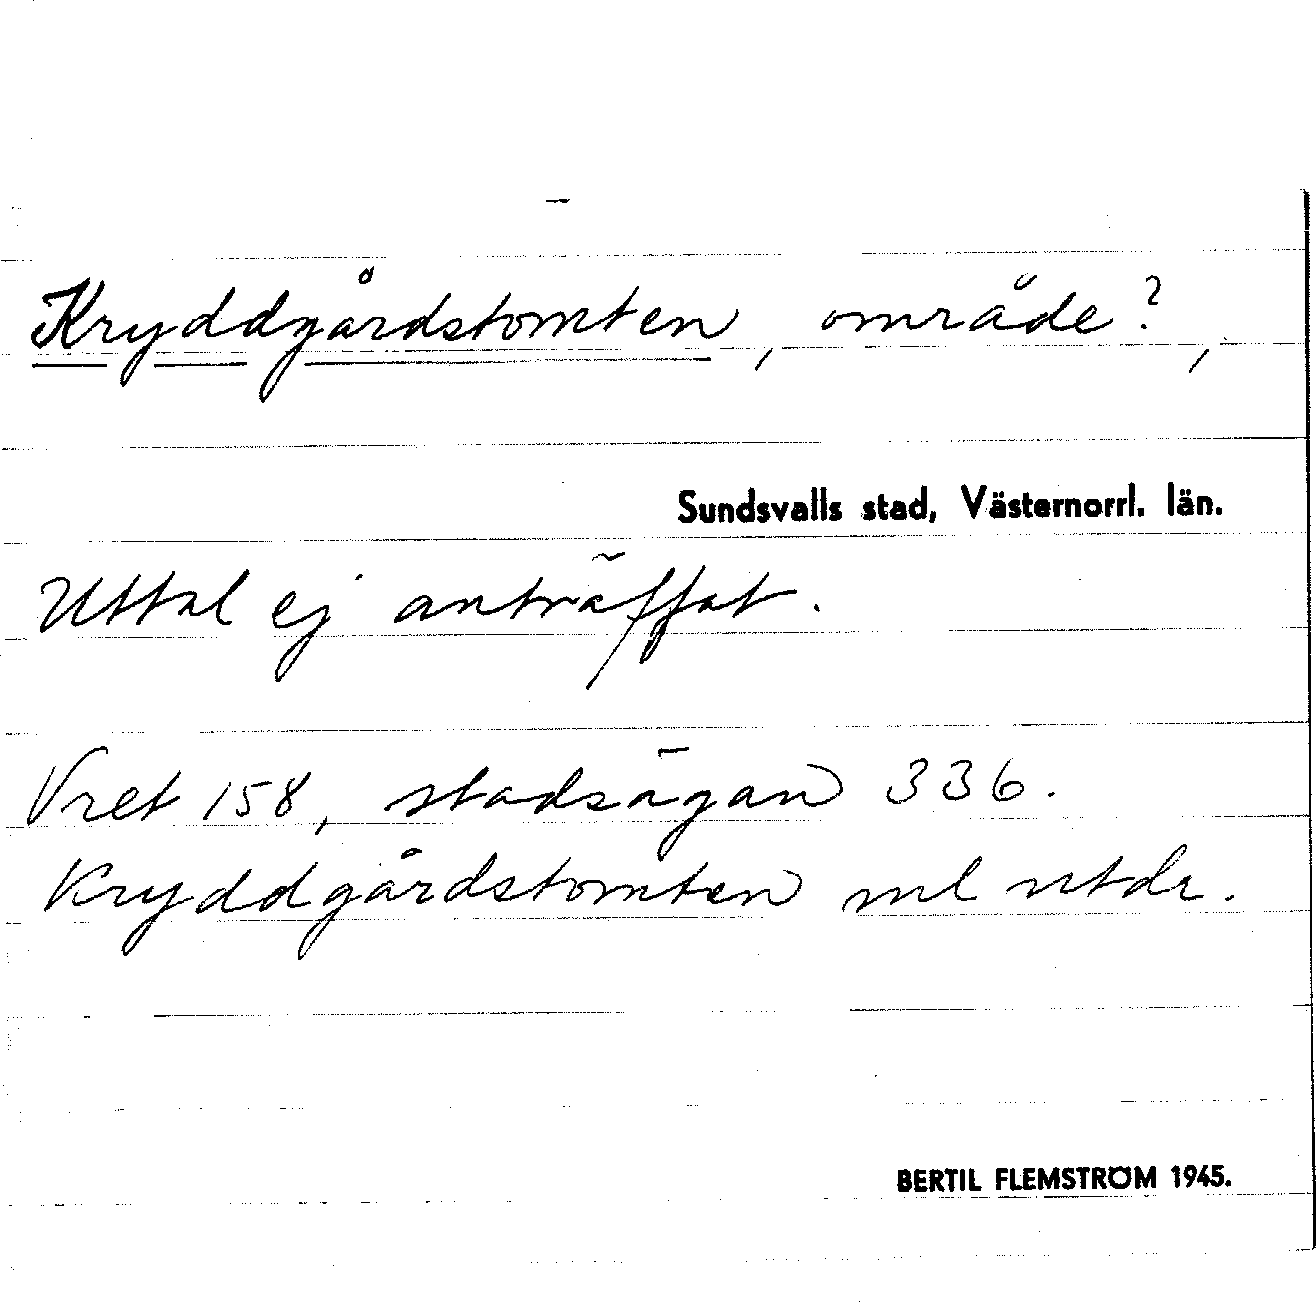 Kryddgårdstomten, område?,
Sundsvalls stad, Västernorrl. län.
Uttal ej anträffat.
Vret 158, stadsägan 336.
Kryddgårdstomten ml utdr.
BERTIL FLEMSTRÖM 1945.